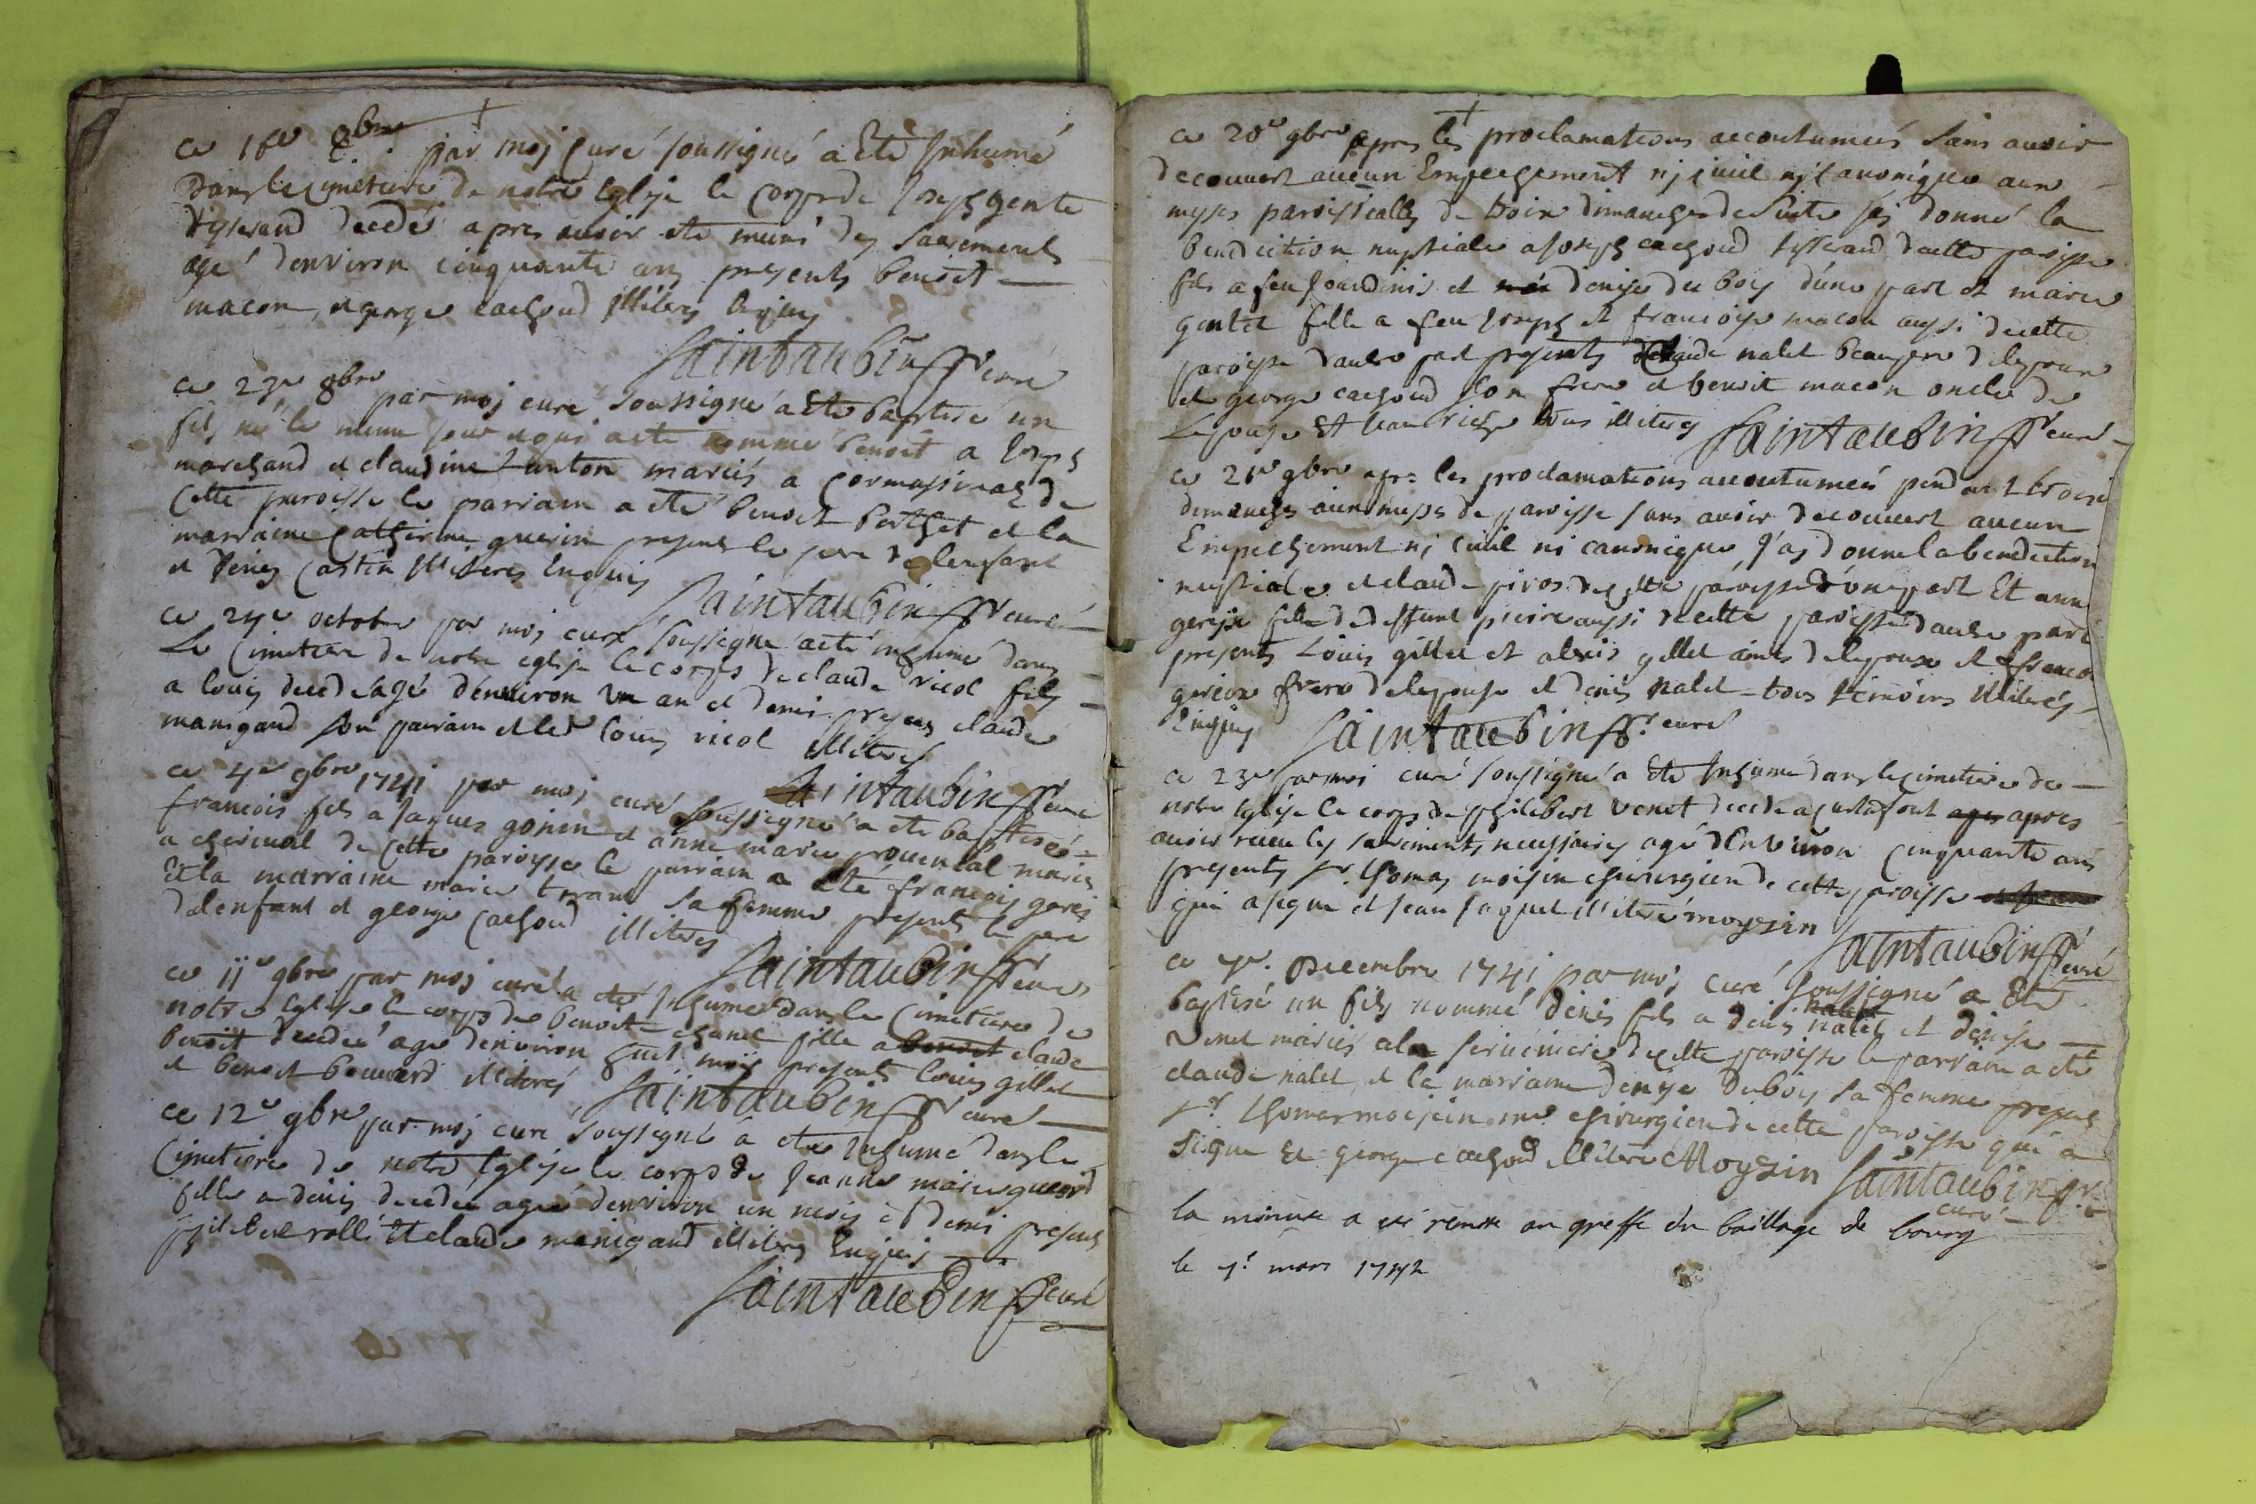 ce 16e 8bre par moj curé soussigné a Eté Inhumé
dans le cimetiere de notre Eglise le corps de Joseph gentet
tisserand decedé apres avoir eté muni des sacrements
agé d'environ cinquante ans presents benoit
macon, et george cachoud illiteres Enquis
Saintaubin ffr curé
ce 23e 8bre par moj curé soussigné a Eté baptisé un
fils né le meme jour et qui a eté nommé benoit a Joseph
marchand et claudine Lanton mariés a de
cette paroisse le parrain a eté benoit berthet et la
marraine catherine guerin presents le pere de l'enfant
et Denis illiteres Enquis
Saintaubin ffr curé
ce 24e octobre par moj curé soussigné a eté inhumé dans
Le Cimetiere de notre eglise le corps de claude nicol fils
a louis decedé agé d'environ un an et demi presens claude
manigaud son parrain et led louis nicol illiteres
Saintaubin ffr curé
ce 4e 9bre 1741 par moj curé soussigné a eté baptisé
francois fils a Jaques gonin et anne marie provental mariés
a de cette paroisse le parrain a Eté francois
Et la marraine marie sa femme presents le pere
de l'enfant et george Cachoud illiteres
Saintaubin ffr curé
ce 11e 9bre par moj curé a eté Inhumé dans le Cimetiere de
notre Eglise le corps de benoite chanel fille a benoit claude
benoit decedée agée d'environ huit mois presents louis gillet
et benoit bouvard illiterés
Saintaubin ffr curé
ce 12e 9bre par moj curé soussigné a eté Inhumé dans le
Cimetiere de notre Eglise le corps de Jeanne marie
fille a denis decedée agée d'environ un mois et demi presents
philibert rollé Et claude manigaud illiteres Enquis
Saintaubin ffr curé
ce 20e 9bre apres les proclamations accoutumées sans avoir
decouvert aucun Empechement nj civil nj canonique aux
messes paroissialles de trois dimanches de suite j'aj donné la
benediction nuptiale a Joseph cachoud tisserand de cette paroisse
fils a feu et denise du bois d'une part et marie
gentet fille a feu Joseph et francoise macon aussi de cette
paroisse d'autre part presents claude nalet beaupere de l'epoux
et george cachoud son frere et benoit macon oncle de
L'epouse Et tous illiteres Saintaubin ffr curé
ce 21e 9bre apr les proclamations accoutumées pendant trois
dimanches aux messes de paroisse sans avoir decouvert aucun
Empechement nj civil ni canonique j'aj donné la benediction
nuptiale a claude de cette paroisse d'une part Et anne
fille de deffunt pierre aussi de cette paroisse d'autre part
presents Louis gillet et alexis gillet amis de l'epoux et francois
frere de l'epouse et denis nalet tous temoins illiterés
Enquis Saintaubin ffr curé
ce 23e par moi curé soussigné a Eté Inhumé dans le cimetiere de
notre Eglise le corps de philibert venet decedé a apres
avoir receu les sacrements necessaires agé d'Environ Cinquante ans
presents Sr. thomas moisin chirurgien de cette paroisse
qui a signé et Jean Jaquet illiteré moyzin
Saintaubin ffr curé
ce 4e. Decembre 1741 par moj curé soussigné a Eté
baptisé un fils nommé denis fils a denis nalet et denise
venet mariés a la de cette paroisse le parrain a eté
claude nalet, et la marraine denise dubois sa femme presents
Sr. thomas moisin me chirurgien de cette paroisse qui a
signé Et george cachoud illiteré Moyzin Saintaubin ffr
curé
la minute a eté remise au greffe du baillage de bourg
le 1r. mars 1742